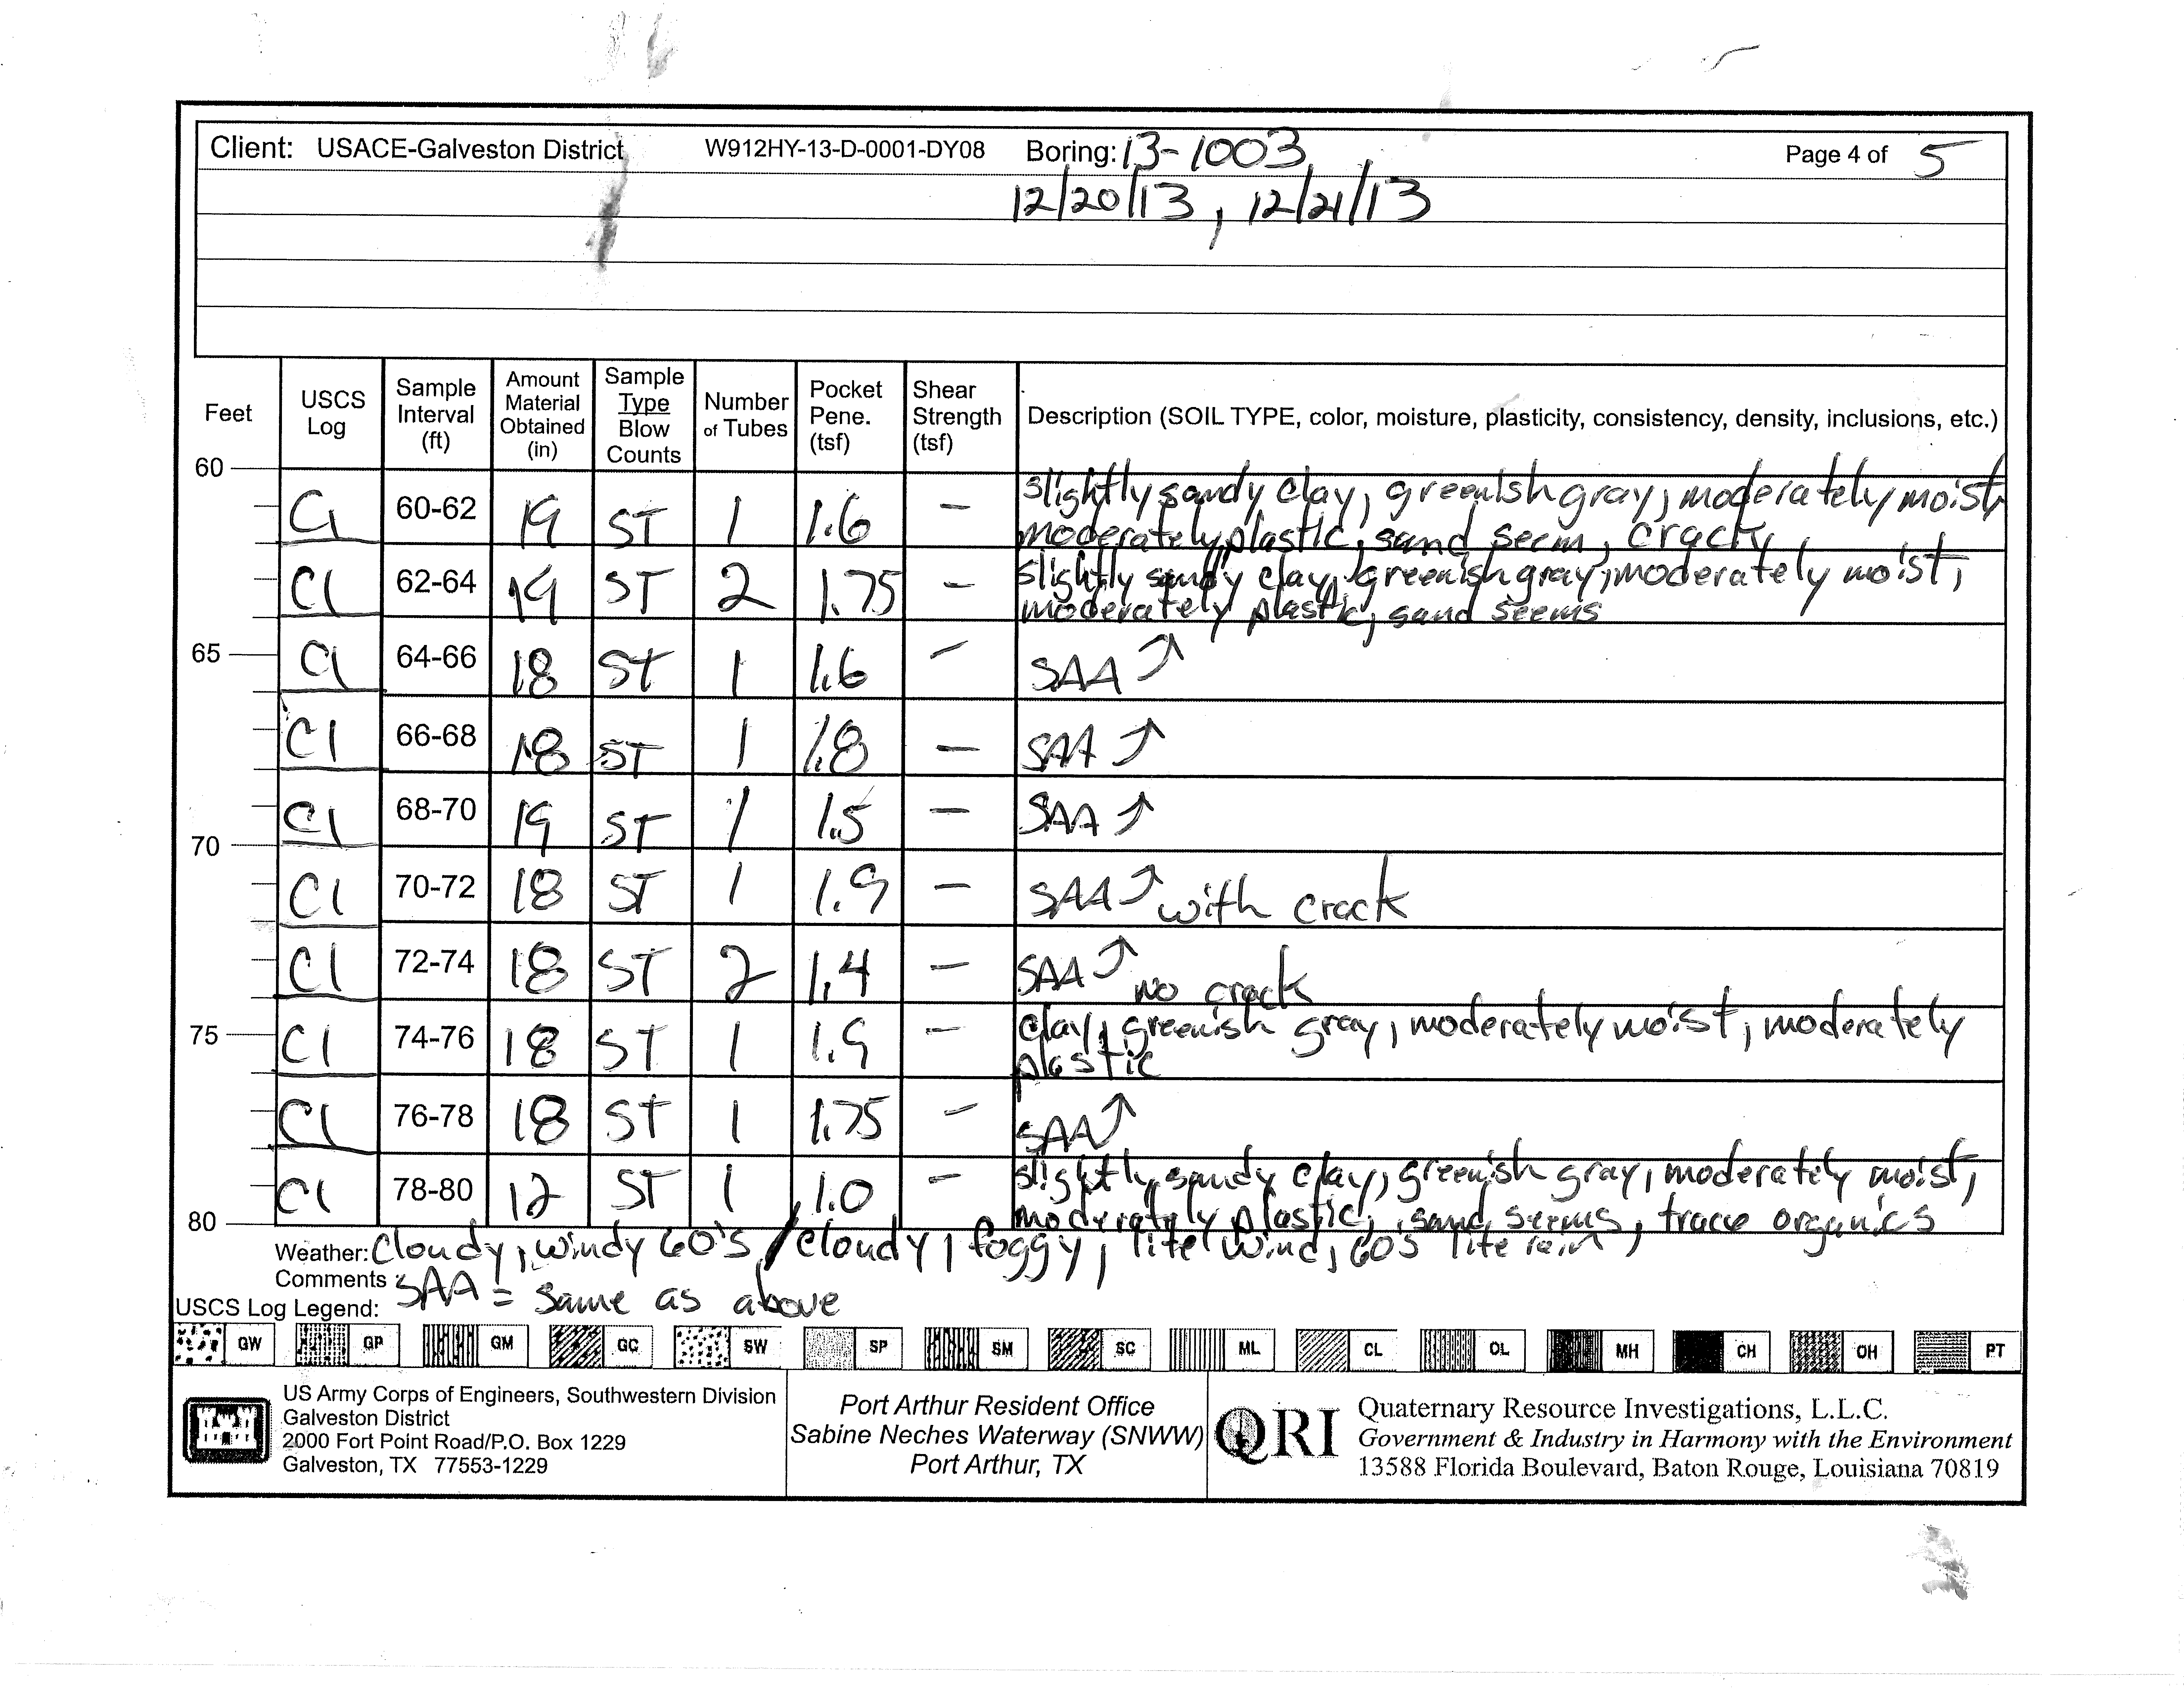 Client: USACE-Galveston District W912HY-13-D-0001-DY08 Boring: 13-1003 Page 4 of 5
12/20/13, 12/21/13
Feet USCS Log Sample Interval (ft) Amount Material Obtained (in) Sample Type Blow Counts Number of Tubes Pocket Pene. (tsf) Shear Strength (tsf) Description (SOIL TYPE, color, moisture, plasticity, consistency, density, inclusions, etc.)
60
Cl 60-62 19 ST 1 1.6 — slightly sandy clay, greenish gray, moderately moist,
moderately plastic, sand seem, crack
Cl 62-64 19 ST 2 1.75 — slightly sandy clay, greenish gray, moderately moist,
moderately plastic, sand seems
65 Cl 64-66 18 ST 1 1.6 — SAA ↑
Cl 66-68 18 ST 1 1.8 — SAA ↑
Cl 68-70 19 ST 1 1.5 — SAA ↑
70
Cl 70-72 18 ST 1 1.9 — SAA ↑ with crack
Cl 72-74 18 ST 2 1.4 — SAA ↑ no crack
75 Cl 74-76 18 ST 1 1.9 — clay, greenish gray, moderately moist, moderately
plastic
Cl 76-78 18 ST 1 1.75 — SAA ↑
Cl 78-80 12 ST 1 1.0 — slightly sandy clay, greenish gray, moderately moist,
80 moderately plastic, sand seems, trace organics
Weather: Cloudy, windy 60's / cloudy, foggy, lite wind, 60's lite rain
Comments: SAA = same as above
USCS Log Legend:
GW GP GM GC SW SP SM SC ML CL OL MH CH OH PT
US Army Corps of Engineers, Southwestern Division
Galveston District
2000 Fort Point Road/P.O. Box 1229
Galveston, TX 77553-1229
Port Arthur Resident Office
Sabine Neches Waterway (SNWW)
Port Arthur, TX
QRI
Quaternary Resource Investigations, L.L.C.
Government & Industry in Harmony with the Environment
13588 Florida Boulevard, Baton Rouge, Louisiana 70819